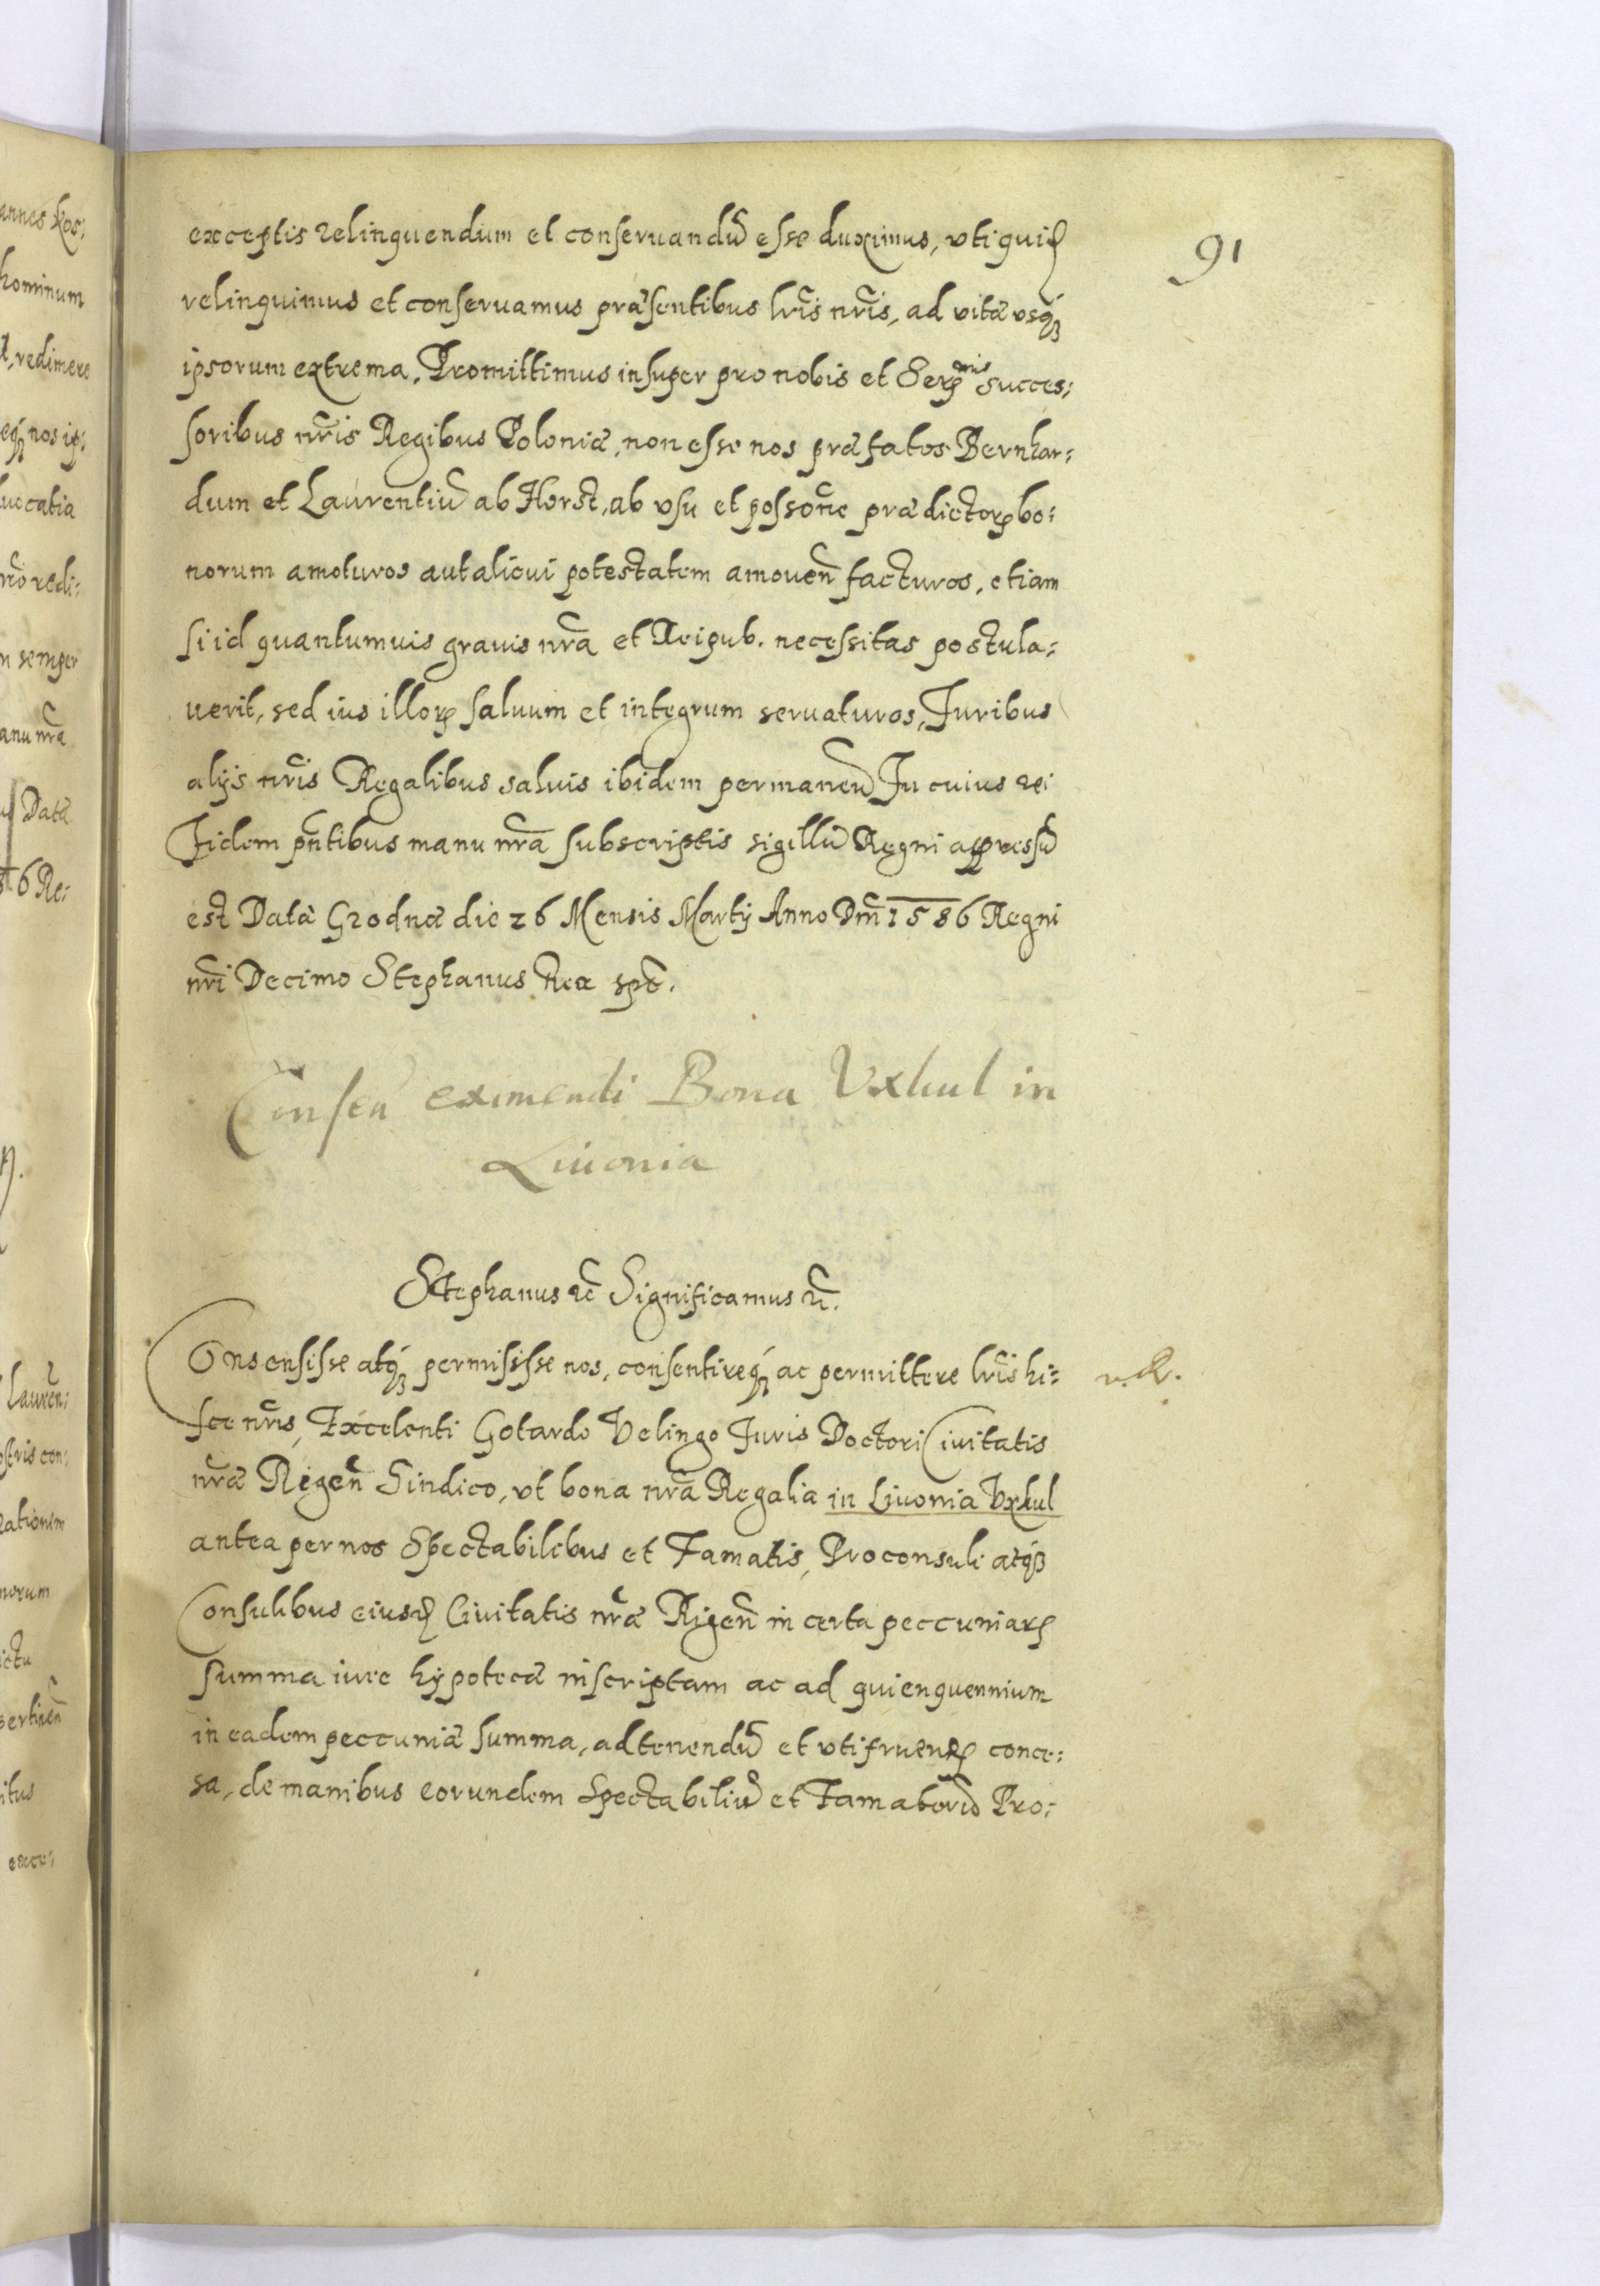 91
exceptis relinquendum et conseruandũ esse duximus, vti quid
relinquimus et conseruamus præsentibus lr̃is nr̃is, ad vitã vsq́ꝫ
ipsorum extrema. Promittimus insuper pro nobis et Serꝫmis succes:
soribus nr̃is Regibus Poloniæ, non esse nos præfatos Bernhar:
dum et Laurentiũ ab Horst, ab vsu et possõne prædictorꝫ bo:
norum amoturos aut alicui potestatem amouen̄ facturos, etiam
si id quantumuis grauis nr̃a et Reipub. necessitas postula:
uerit, sed ius illorꝫ saluum et integrum seruaturos, Juribus
alijs nr̃is Regalibus saluis ibidem permanen̄ In cuius rei
Fidem pn̄tibus manu nr̃a subscriptis sigillũ Regni appressũ
est Datã Grodnæ die 26 Mensis Martij Anno Dm̄ 1586 Regni
nr̃i Decimo Stephanus Rex spt̃.
Consen̄ eximendi Bona Vxkul in
Liuonia
Stephanus etc̃ Significamus etc̃.
Consensisse atq́ꝫ permisisse nos, consentireq́ꝫ ac permittere lr̃is hi:
v. R.
sce nr̃is, Excelenti Gotardo Velingo Juris Doctori Ciuitatis
nr̃æ Regen̄ Sindico, vt bona nr̃a Regalia in Liuonia Vxkul
antea per nos Spectabilibus et Famatis, Proconsuli atq́ꝫ
Consulibus eiusd Ciuitatis nr̃æ Rigen̄ in certa peccuniarꝫ
summa iure hypotecæ inscriptam ac ad quienquennium
in eadem peccuniæ summa, ad tenendũ et vtifruendꝫ conce:
sa, de manibus eorundem Spectabiliũ et Famatorũ Pro: